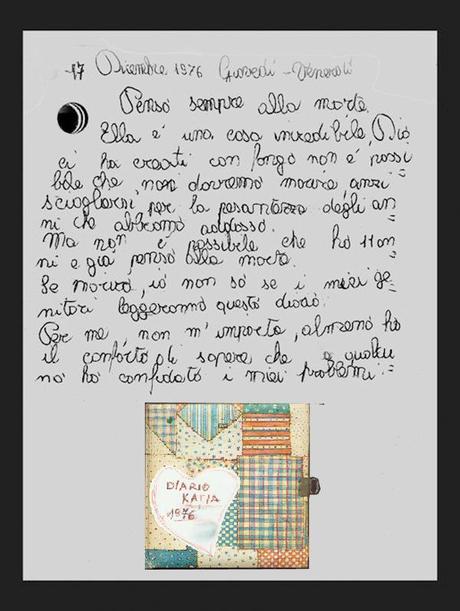 17 Dicembre 1976 Giovedì - Venerdì
Penso sempre alla morte.
Ella é una cosa incredibile, Dio
ci ha creati con fango non é possi
bile che noi dovremo morire anzi
scioglierci, per la pesantezza degli an=
ni che abbiamo addosso.
Ma non é possibile che ho 11 an=
ni e già penso alla morte.
Se morirò, io non sò se i miei ge=
nitori leggeranno questo diario.
Per me non m'importa, almeno ho
il conforto di sapere che a qualcu
no ho confidato i miei problemi.=
DIARIO
KATIA
1976